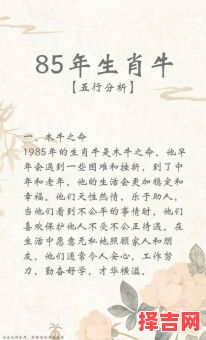 85年生肖牛
【五行分析】
一、木牛之命
1985年的生肖牛是木牛之命。他早
年会遇到一些困难和挫折，到了中
年和老年，他的生活会更加稳定和
幸福。他们天性热情，乐于助人，
当他们看到不公平的事情时，他们
喜欢保护他人不受不公正待遇。在
生活中愿意无私地照顾家人和朋
友，他们通常令人安心，工作努
力，勤奋好学，才华横溢。
择吉网